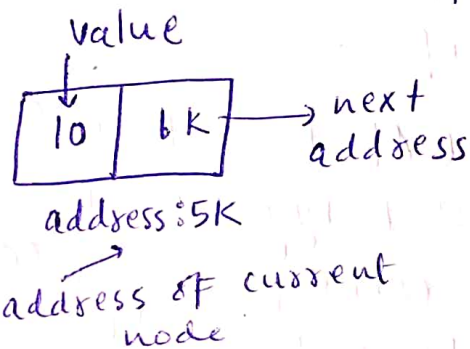 value
10 6K
next
address
address:5K
address of current
node